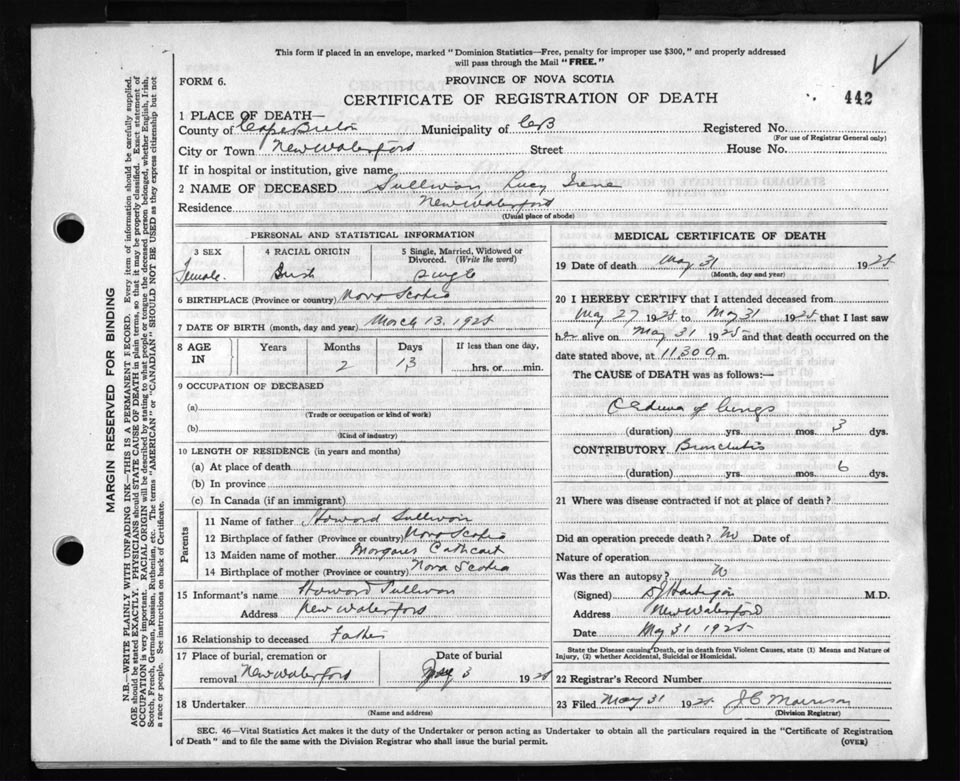 This form if placed in an envelope, marked "Dominion Statistics—Free, penalty for improper use $300," and properly addressed
will pass through the Mail "FREE."
FORM 6.
PROVINCE OF NOVA SCOTIA
CERTIFICATE OF REGISTRATION OF DEATH
442
1 PLACE OF DEATH—
County of Cape Breton Municipality of CB Registered No.
(For use of Registrar General only)
City or Town New Waterford Street House No.
If in hospital or institution, give name
2 NAME OF DECEASED Sullivan Lucy Irene
Residence New Waterford
(Usual place of abode)
PERSONAL AND STATISTICAL INFORMATION
3 SEX 4 RACIAL ORIGIN 5 Single, Married, Widowed or Divorced. (Write the word)
Female. Irish Single
6 BIRTHPLACE (Province or country) Nova Scotia
7 DATE OF BIRTH (month, day and year) March 13, 1925
8 AGE IN Years Months Days If less than one day,
2 13 hrs. or min.
9 OCCUPATION OF DECEASED
(a)
(Trade or occupation or kind of work)
(b)
(Kind of industry)
10 LENGTH OF RESIDENCE (in years and months)
(a) At place of death
(b) In province
(c) In Canada (if an immigrant)
Parents
11 Name of father Howard Sullivan
12 Birthplace of father (Province or country) Nova Scotia
13 Maiden name of mother Cathcart
14 Birthplace of mother (Province or country) Nova Scotia
15 Informant's name Howard Sullivan
Address New Waterford
16 Relationship to deceased Father
17 Place of burial, cremation or Date of burial
removal New Waterford 3 1925
18 Undertaker
(Name and address)
MEDICAL CERTIFICATE OF DEATH
19 Date of death May 31 1925
(Month, day and year)
20 I HEREBY CERTIFY that I attended deceased from
May 27 1925 to May 31 1925 that I last saw
her alive on May 31 1925 and that death occurred on the
date stated above, at 11,30 a m.
The CAUSE of DEATH was as follows:—
Oedema of lungs
(duration) yrs. mos. 3 dys.
CONTRIBUTORY Bronchitis
(duration) yrs. mos. 6 dys.
21 Where was disease contracted if not at place of death?
Did an operation precede death? No Date of
Nature of operation
Was there an autopsy? No
(Signed) M.D.
Address New Waterford
Date May 31 1925
State the Disease causing Death, or in death from Violent Causes, state (1) Means and Nature of
Injury, (2) whether Accidental, Suicidal or Homicidal.
22 Registrar's Record Number
23 Filed May 31 1925 J C Morrison
(Division Registrar)
SEC. 46—Vital Statistics Act makes it the duty of the Undertaker or person acting as Undertaker to obtain all the particulars required in the "Certificate of Registration
of Death" and to file the same with the Division Registrar who shall issue the burial permit.
(OVER)
MARGIN RESERVED FOR BINDING
N.B.—WRITE PLAINLY WITH UNFADING INK—THIS IS A PERMANENT RECORD. Every item of information should be carefully supplied.
AGE should be stated EXACTLY. PHYSICIANS should STATE CAUSE OF DEATH in plain terms, so that it may be properly classified. Exact statement of
OCCUPATION is very important. RACIAL ORIGIN will be described by stating to what people or tongue the deceased person belonged, whether English, Irish,
Scotch, French, German, Russian, Ruthenian, etc. The terms "AMERICAN" or "CANADIAN" SHOULD NOT BE USED as they express citizenship but not
a race or people. See instructions on back of Certificate.